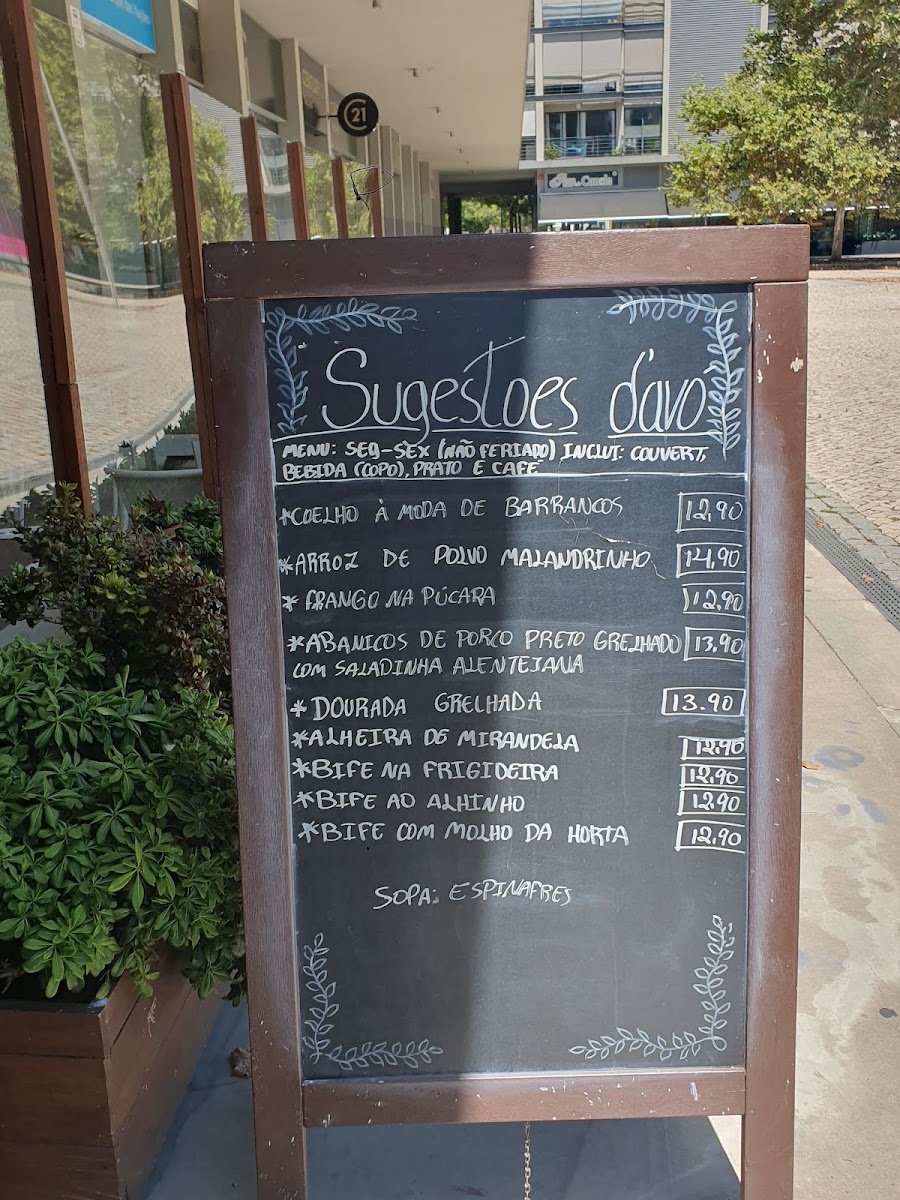 C21
Sugestoes d'avo
MENU: SEG-SEX (NÃO FERIADO) INCLUI: COUVERT,
BEBIDA (COPO), PRATO E CAFÉ
*COELHO À MODA DE BARRANCOS 12,90
*ARROZ DE POLVO MALANDRINHO 14,90
*FRANGO NA PÚCARA 12,90
*ABANICOS DE PORCO PRETO GRELHADO 13,90
COM SALADINHA ALENTEJANA
*DOURADA GRELHADA 13.90
*ALHEIRA DE MIRANDELA 12,90
*BIFE NA FRIGIDEIRA 12,90
*BIFE AO ALHINHO 12,90
*BIFE COM MOLHO DA HORTA 12,90
SOPA: ESPINAFRES